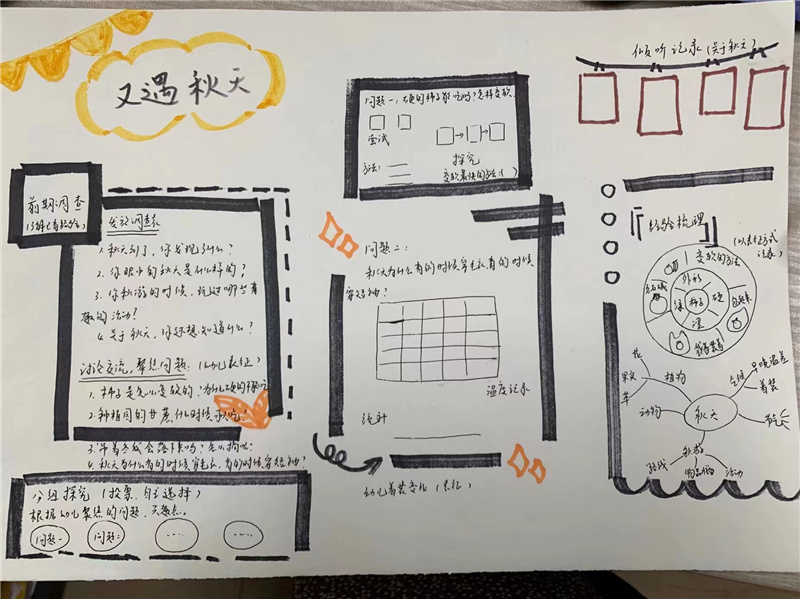 又遇秋天
前期调查
(了解已有经验)
发放调查表
1. 秋天到了,你发现了什么?
2. 你眼中的秋天是什么样的?
3. 你秋游的时候,玩过哪些有
趣的活动?
4. 关于秋天,你还想知道什么?
讨论交流,聚焦问题:(幼儿表征)
1. 柿子是怎么变软的?为什么硬的
2. 种植园的甘蔗什么时候
4. 秋天为什么有的时候穿毛衣,有的时候穿短袖?
分组探究(投票,自主选择)
根据幼儿聚焦的问题,
问题一
问题二
....
....
问题一:硬的柿子能吃吗?怎样变软.
尝试
探究
方法:
变软最快的方法( )
问题二:
秋天为什么有的时候穿毛衣,有的时候
穿短袖?
温度记录
统计
幼儿着装变化(表征)
倾听记录(关于秋天)
经验梳理
(以表征方式
记录)
变软的方法
外形
绿
柿子
硬
涩
秋天
植物
花
果实
草
动物
气候
早晚温差
着装
秋游
路线
物品准备
活动